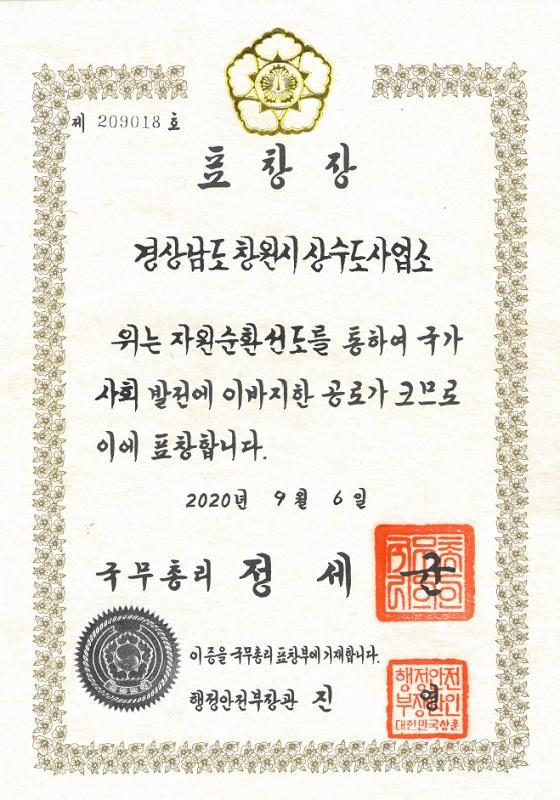 제 209018 호
표창장
경상남도 창원시 상수도사업소
위는 자원순환선도를 통하여 국가
사회 발전에 이바지한 공로가 크므로
이에 표창합니다.
2020년 9월 6일
국무총리 정세균
이 증을 국무총리 표창부에 기재합니다.
행정안전부장관 진 영
행정안전
부장관인
대한민국상훈